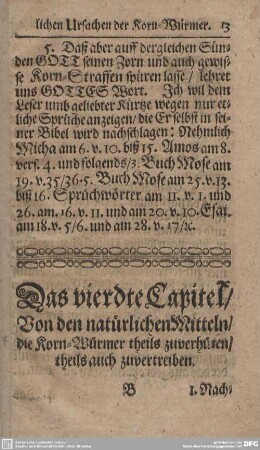 lichen Ursachen der Korn-Würmer. 13
5. Daß aber auff dergleichen Sün-
den GOTT seinen Zorn und auch gewis-
se Korn-Straffen spüren lasse/ lehret
uns GOTTES Wort. Ich wil dem
Leser umb geliebter Kürtze wegen nur et-
liche Sprüche anzeigen/ die Er selbst in sei-
ner Bibel wird nachschlagen: Nehmlich
Micha am 6. v. 10. biß 15. Amos am 8.
vers. 4. und folgends/ 3. Buch Mose am
19. v. 35/36. 5. Buch Mose am 25. v. 13.
biß 16. Sprüchwörter am 11. v. 1. und
26. am. 16. v. 11. und am 20. v. 10. Esai.
am 18. v. 5/6. und am 28. v. 17/ꝛc.
Das vierdte Capitel/
Von den natürlichen Mitteln/
die Korn-Würmer theils zuverhüten/
theils auch zuvertreiben.
B 1. Nach-
DFG